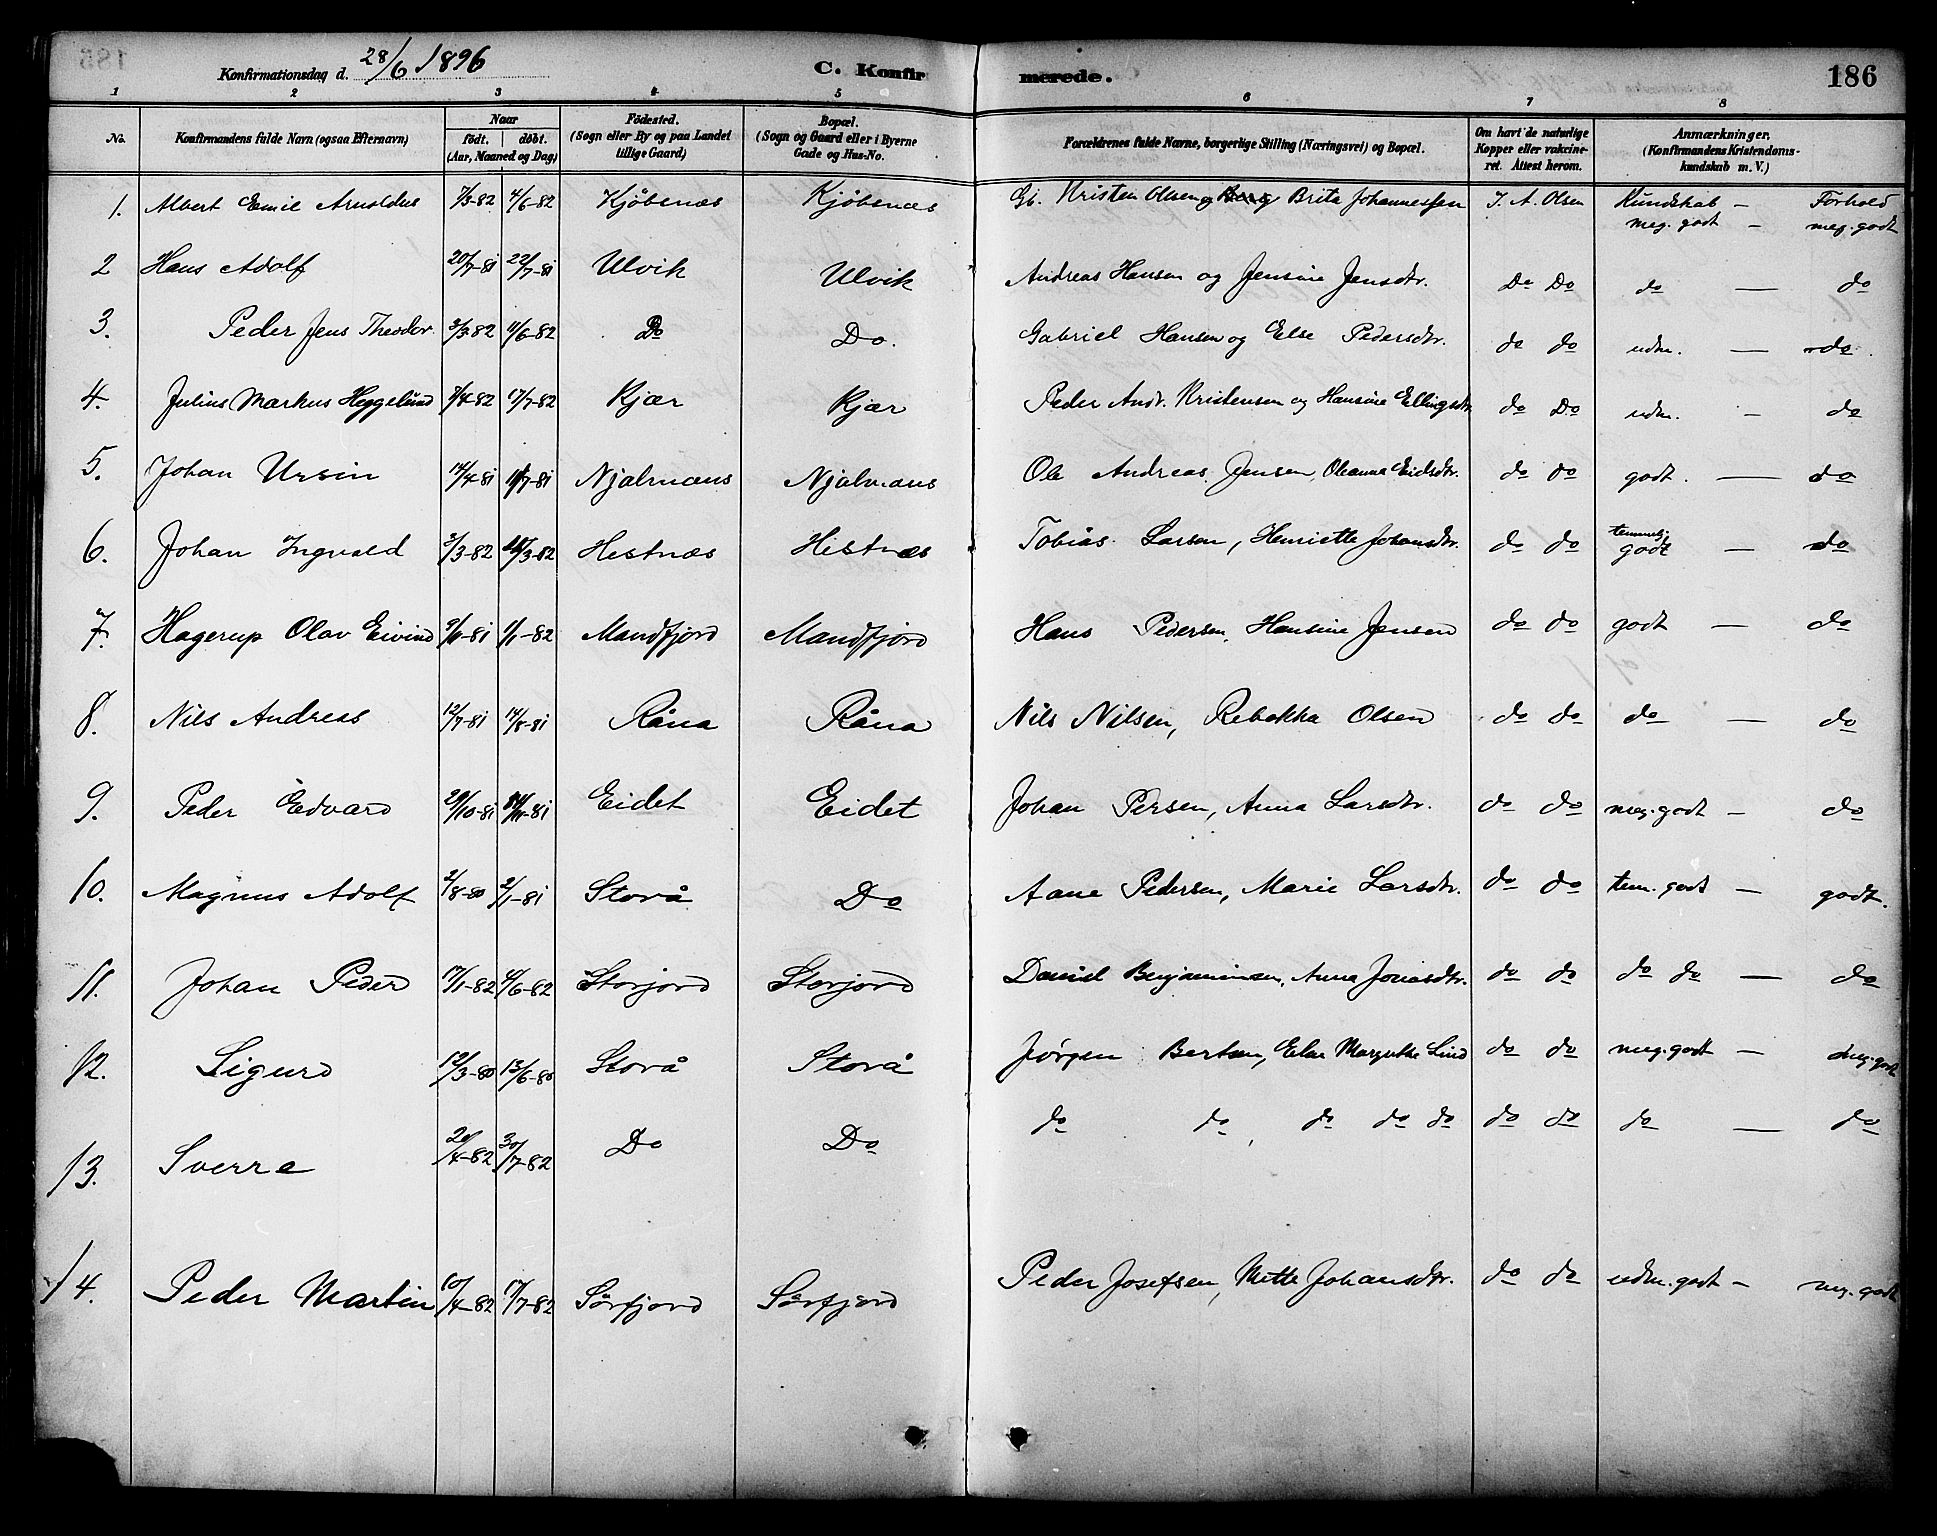 Konfirmationsdag d. 28/6 1896 C. Konfirmerede. 186
1 2 3 4 5 6 7 8
No. Konfirmandens fulde Navn (ogsaa Efternavn) Naar født. døbt. (Aar, Maaned og Dag) Fødested. (Sogn eller By og paa Landet tillige Gaard) Bopæl. (Sogn og Gaard eller i Byerne Gade og Hus-No. Forældrenes fulde Navne, borgerlige Stilling (Næringsvei) og Bopæl. Om havt de naturlige Kopper eller vakcineret. Attest herom. Anmærkninger, (Konfirmandens Kristendomskundskab m. V.)
1. Albert Emil Arnoldus 7/3-82 4/6-82 Kjøbsnæs Kjøbsnæs Gb. Kristen Olsen og Brita Johannessen J. A. Olsen Kundskab - Forhold
meg. godt - meg. godt
2 Hans Adolf 20/7-81 22/7-81 Ulvik Ulvik Andreas Hansen og Jensine Jensdtr. Do Do do — do
3. Peder Jens Theodor 3/3-82 4/6-82 Do Do. Gabriel Hansen og Else Pedersdtr. do do udm. — do.
4. Julius Markus Heggelund 7/4-82 17/7-82 Kjær Kjær Peder Andr. Kristensen og Hansine Ellingsdtr do Do udm. - do
5. Johan Ursin 14/4-81 Njalmæns Njalmæns Ole Andreas Jensen, Oleanna Eidsdtr. do do godt. — do
6. Johan Ingvald 3/3-82 Hestnæs Hestnæs Tobias Larsen, Henriette Johansdtr. do do temmelig godt — do
7. Hagerup Olav Eivind 1/1-82 Mandfjord Mandfjord Hans Pedersen, Hansine Jensen do do godt — do
8. Nils Andreas 12/7-81 14/8-81 Råna Råna Nils Nilsen, Rebekka Olsen do do do — do
9. Peder Edvard Eidet Eidet Johan Persen, Anna Larsdtr. do do meg. godt — do
10. Magnus Adolf 2/8-80 2/1-81 Storå Do Aane Pedersen, Marie Larsdtr. do do tem. godt — godt.
11. Johan Peder 17/1-82 4/6-82 Storjord Storjord Daniel Benjaminsen, Anna Jonasdtr. do do do do — do
12. Sigurd 12/3-80 13/6-80 Storå Storå Jørgen Bertsen, Else Margrethe Lind do do meg. godt — meg. godt
13. Sverre 20/4-82 30/7-82 Do Do do do, do do do do do do — do
14. Peder Martin 10/4-82 17/7-82 Sörfjord Sörfjord Peder Josefsen, Mette Johansdtr. do do udm. godt — meg. godt